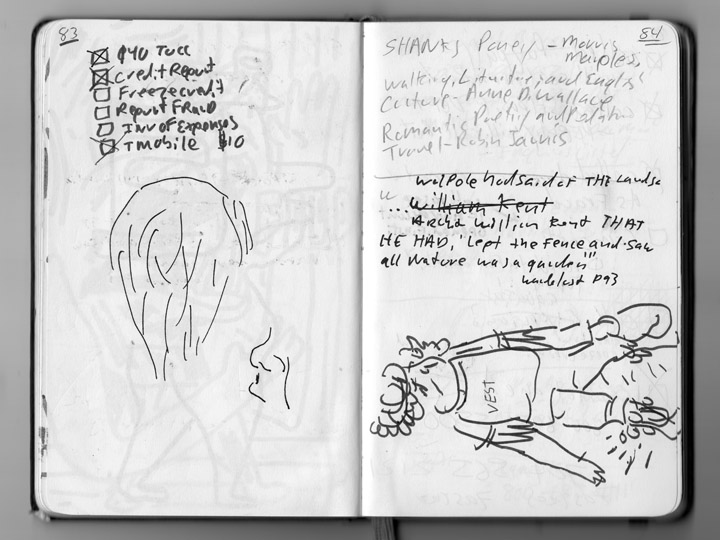 83
$40 Tucc
Credit Report
Freeze credit
Report Fraud
Inv of Expenses
TMobile $10
84
SHANKS Poney - Morris
Marples
Walking, Literature, and English
Culture - Anne D. Wallace
Romantic Poetry and
Travel - Robin Jarvis
Walpole had said of THE Landsc
William Kent
Archa William Kent THAT
HE HAD, "lept the Fence and saw
all Nature was a garden"
P93
VEST